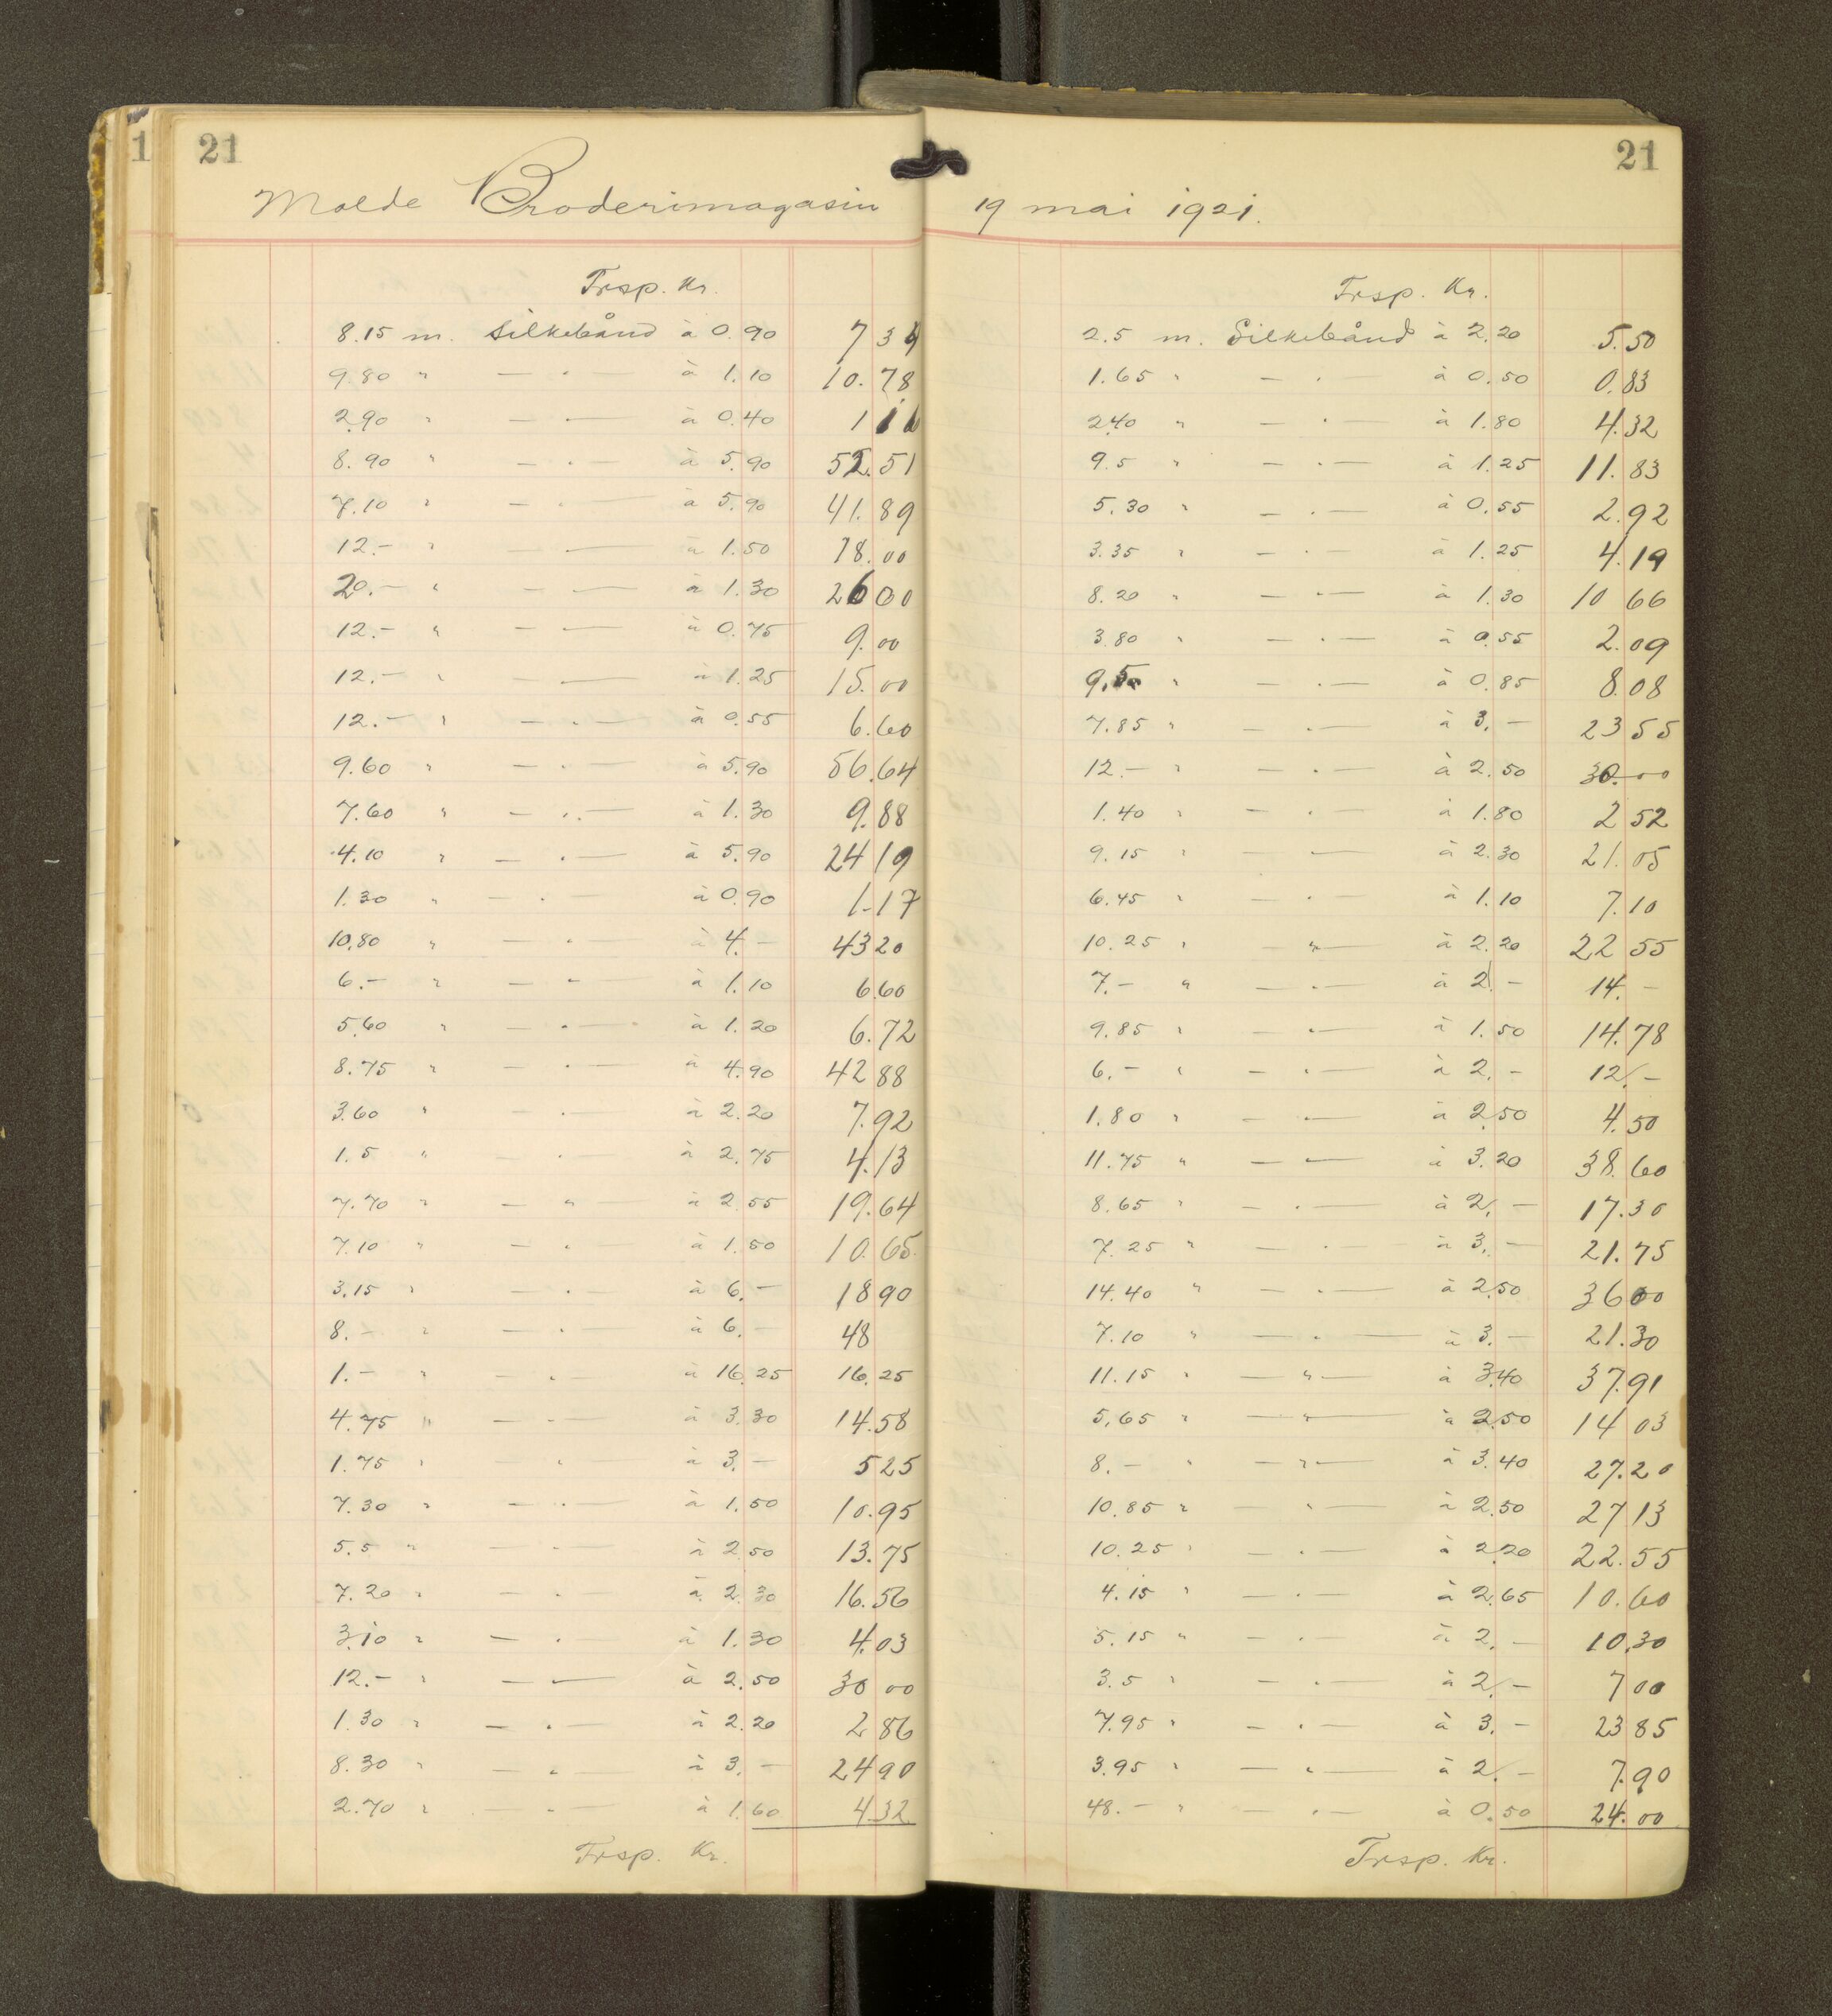 1 21
Molde Broderimagasin
Trsp. Kr.
8.15 m. Silkebånd à 0.90 7 34
9.80 " — " — à 1.10 10.78
2.90 " — " — à 0.40 1 16
8.90 " — " — à 5.90 52.51
7.10 " — " — à 5.90 41.89
12.- " — " — à 1.50 18.00
20.- " — " — à 1.30 26 00
12.- " — " — à 0.75 9.00
12.- " — " — à 1.25 15.00
12.- " — " — à 0.55 6.60
9.60 " — " — à 5.90 56.64
7.60 " — " — à 1.30 9.88
4.10 " — " — à 5.90 24 19
1.30 " — " — à 0.90 1.17
10.80 " — " — à 4.- 43 20
6.- " — " — à 1.10 6.60
5.60 " — " — à 1.20 6.72
8.75 " — " — à 4.90 42 88
3.60 " — " — à 2.20 7.92
1.5 " — " — à 2.75 4.13
7.70 " — " — à 2.55 19.64
7.10 " — " — à 1.50 10.65
3.15 " — " — à 6.- 18 90
8.- " — " — à 6.- 48
1.- " — " — à 16.25 16.25
4.75 " — " — à 3.30 14.58
1.75 " — " — à 3.- 5 25
7.30 " — " — à 1.50 10.95
5.5 " — " — à 2.50 13.75
7.20 " — " — à 2.30 16.56
3.10 " — " — à 1.30 4.03
12.- " — " — à 2.50 30 00
1.30 " — " — à 2.20 2.86
8.30 " — " — à 3.- 24 90
2.70 " — " — à 1.60 4.32
Trsp. Kr.
21
19 mai 1921.
Trsp. Kr.
2.5 m. Silkebånd à 2.20 5.50
1.65 " — " — à 0.50 0.83
2.40 " — " — à 1.80 4.32
9.5 " — " — à 1.25 11.83
5.30 " — " — à 0.55 2.92
3.35 " — " — à 1.25 4.19
8.20 " — " — à 1.30 10 66
3.80 " — " — à 0.55 2.09
9.50 " — " — à 0.85 8.08
7.85 " — " — à 3.- 23 55
12.- " — " — à 2.50 30.00
1.40 " — " — à 1.80 2 52
9.15 " — " — à 2.30 21.05
6.45 " — " — à 1.10 7.10
10.25 " — " — à 2.20 22 55
7.- " — " — à 2.- 14.-
9.85 " — " — à 1.50 14.78
6.- " — " — à 2.- 12.-
1.80 " — " — à 2.50 4.50
11.75 " — " — à 3.20 38.60
8.65 " — " — à 2.- 17.30
7.25 " — " — à 3.- 21.75
14.40 " — " — à 2.50 36 00
7.10 " — " — à 3.- 21.30
11.15 " — " — à 3.40 37.91
5.65 " — " — à 2.50 14 03
8.- " — " — à 3.40 27.20
10.85 " — " — à 2.50 27 13
10.25 " — " — à 2.20 22.55
4.15 " — " — à 2.65 10.60
5.15 " — " — à 2.- 10.30
3.5 " — " — à 2.- 7 00
7.95 " — " — à 3.- 23 85
3.95 " — " — à 2.- 7.90
48.- " — " — à 0.50 24.00
Trsp. Kr.